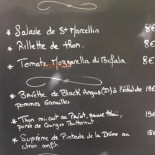 * Salade de St Marcellin 8€
* Rillette de thon. 8€
* Tomate Mozzarella di Bufala
* Bavette de Black Angus à l'échalote 18€
pommes grenailles
* Thon mi-cuit au
purée de Courges Butternut
* Suprême de Pintade de la Drôme au
citron confit.